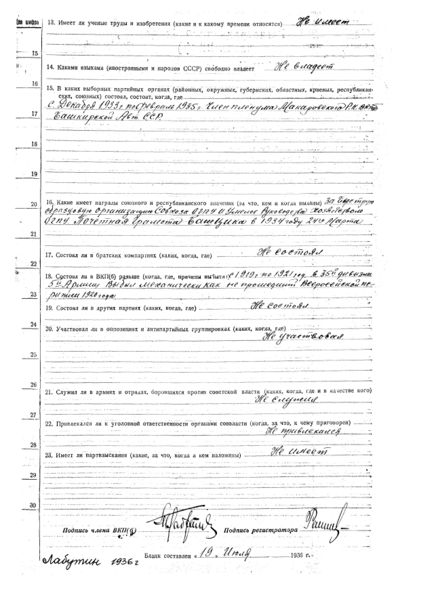 (по шифр)
13. Имеет ли ученые труды и изобретения (какие и к какому времени относятся) Не имеет
15
14. Какими языками (иностранными и народов СССР) свободно владеет Не владеет
16
15. В каких выборных партийных органах (районных, окружных, губернских, областных, краевых, республиканских, союзных) состоял, состоит, когда, где
С Декабря 1933 г по февраль 1935 г. Член пленума Макаровского Р.К. ВКП
17
Башкирской Авт ССР.
18
19
20
16. Какие имеет награды союзного и республиканского значения (за что, кем и когда выданы) За
образцовую организацию Совхоза ОГПУ и умелое Руководство
21
ОГПУ Почетная Грамота БашЦИКа в 1934 году 24го Марта
22
17. Состоял ли в братских компартиях (каких, когда, где) Не состоял
18. Состоял ли в ВКП(б) раньше (когда, где, причины выбытия) с 1919 г по 1921 год в 35й дивизии
23
5й Армии Выбыл механически как не прошедший Всероссийской перерегистрации 1920 года
19. Состоял ли в других партиях (каких, когда, где) Не состоял
24
20. Участвовал ли в оппозициях и антипартийных группировках (каких, когда, где)
Не участвовал
25
26
21. Служил ли в армиях и отрядах, боровшихся против советской власти (каких, когда, где и в качестве кого)
27
Не служил
22. Привлекался ли к уголовной ответственности органами соввласти (когда, за что, к чему приговорен)
28
Не привлекался
23. Имеет ли партвзыскания (какие, за что, когда и кем наложены) Не имеет
29
30
Подпись члена ВКП(б) Подпись регистратора
Лабутин 1936 г
Бланк составлен « 19 » Июля 1936 г.